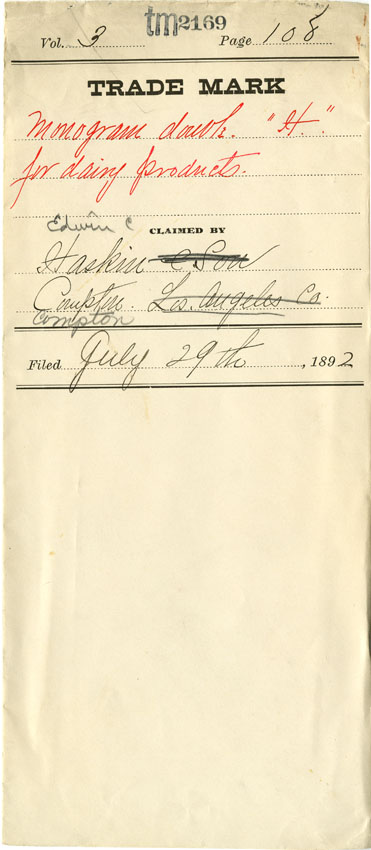 tm2169
Vol. 3 Page 108
TRADE MARK
Monogram doubl. "H."
for dairy products.
Edwin C
CLAIMED BY
Haskin & Son
Compton. Los. Angeles Co.
Compton
Filed July 29th, 1892